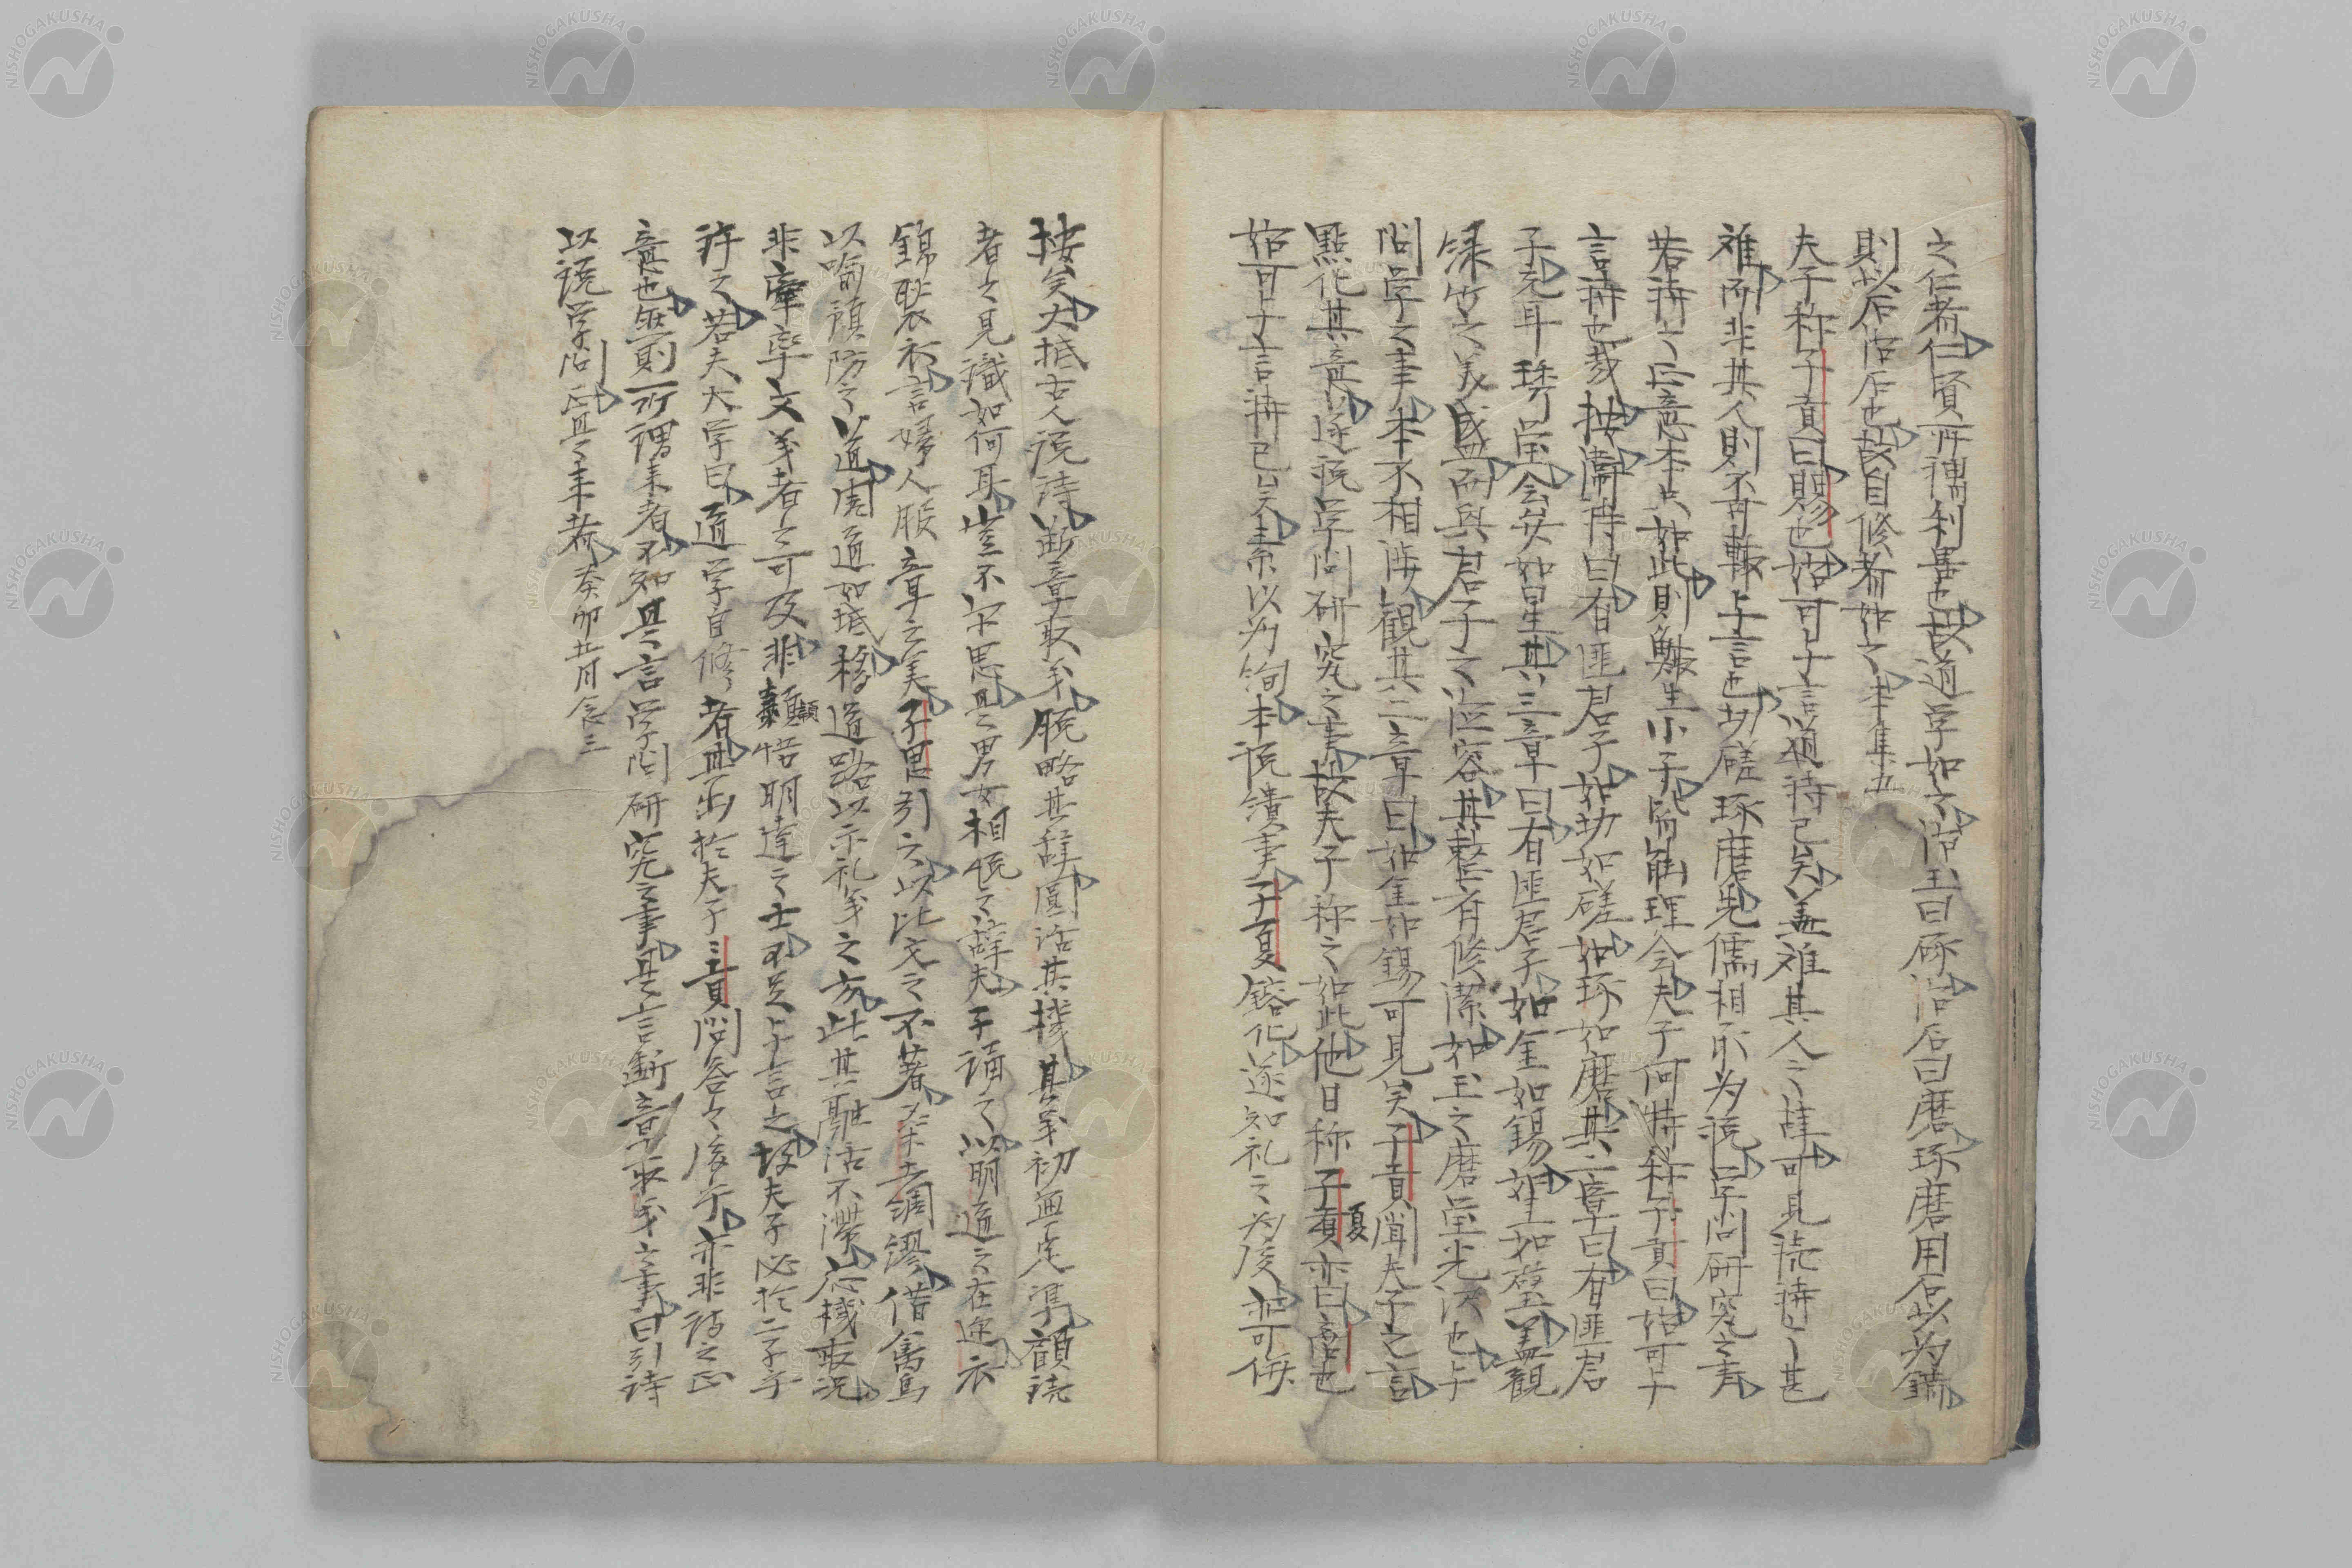 之仁者仁資所禆利甚也故道学如之治玉曰琢治石曰磨琢磨用石以為鑢
則以作治作也故自修者如之本集五
夫子称子貢曰賜也始可与言道詩已矣盖难其人之謹可見読詩之甚
难而非其人則不可輙与言也切磋琢磨先儒相承为説学問研究之事
若詩之正意本只如此則鯫生小子皆能理会夫子何特称子貢曰始可与
言詩也哉按衞詩曰有匪君子如切如磋如琢如磨其二章曰有匪君
子充耳琇瑩会弁如星其三章曰有匪君子如金如錫如圭如璧盖観
緑竹之美盛而興君子之徳容其整斉修潔如玉之磨瑩光沢也与
問学之事本不相渉観其三章曰如金如錫可見矣子貢聞夫子之言
點化其意逐説学問研究之事故夫子称之如此他日称子貢夏亦曰商也
始可与言詩已矣素以为絢本説繢事子夏鎔化遂知礼之为後非可併
按矣大抵古人説詩断章取義脱略其辞圓活其機其義初無定準顧読
者之見識如何耳豈不尔思是男女相悦之辞夫子誦之以明道之在迩衣
錦褧衣言婦人服章之美子思引之以比文之不著太王綢繆借禽鳥
以喻預防之道周道如砥移道路以示礼義之方此其融活不滞応機取況
非牽牽文義者之可及非穎悟明達之士不足与言之故夫子必於二子乎
許之若夫大学曰道学自修者其出於夫子子貢問答之後乎亦非詩之正
意也然則所謂本者不知其言学問研究之事其言断章取義之事曰引詩
以説学問正是之事者癸卯五月念三